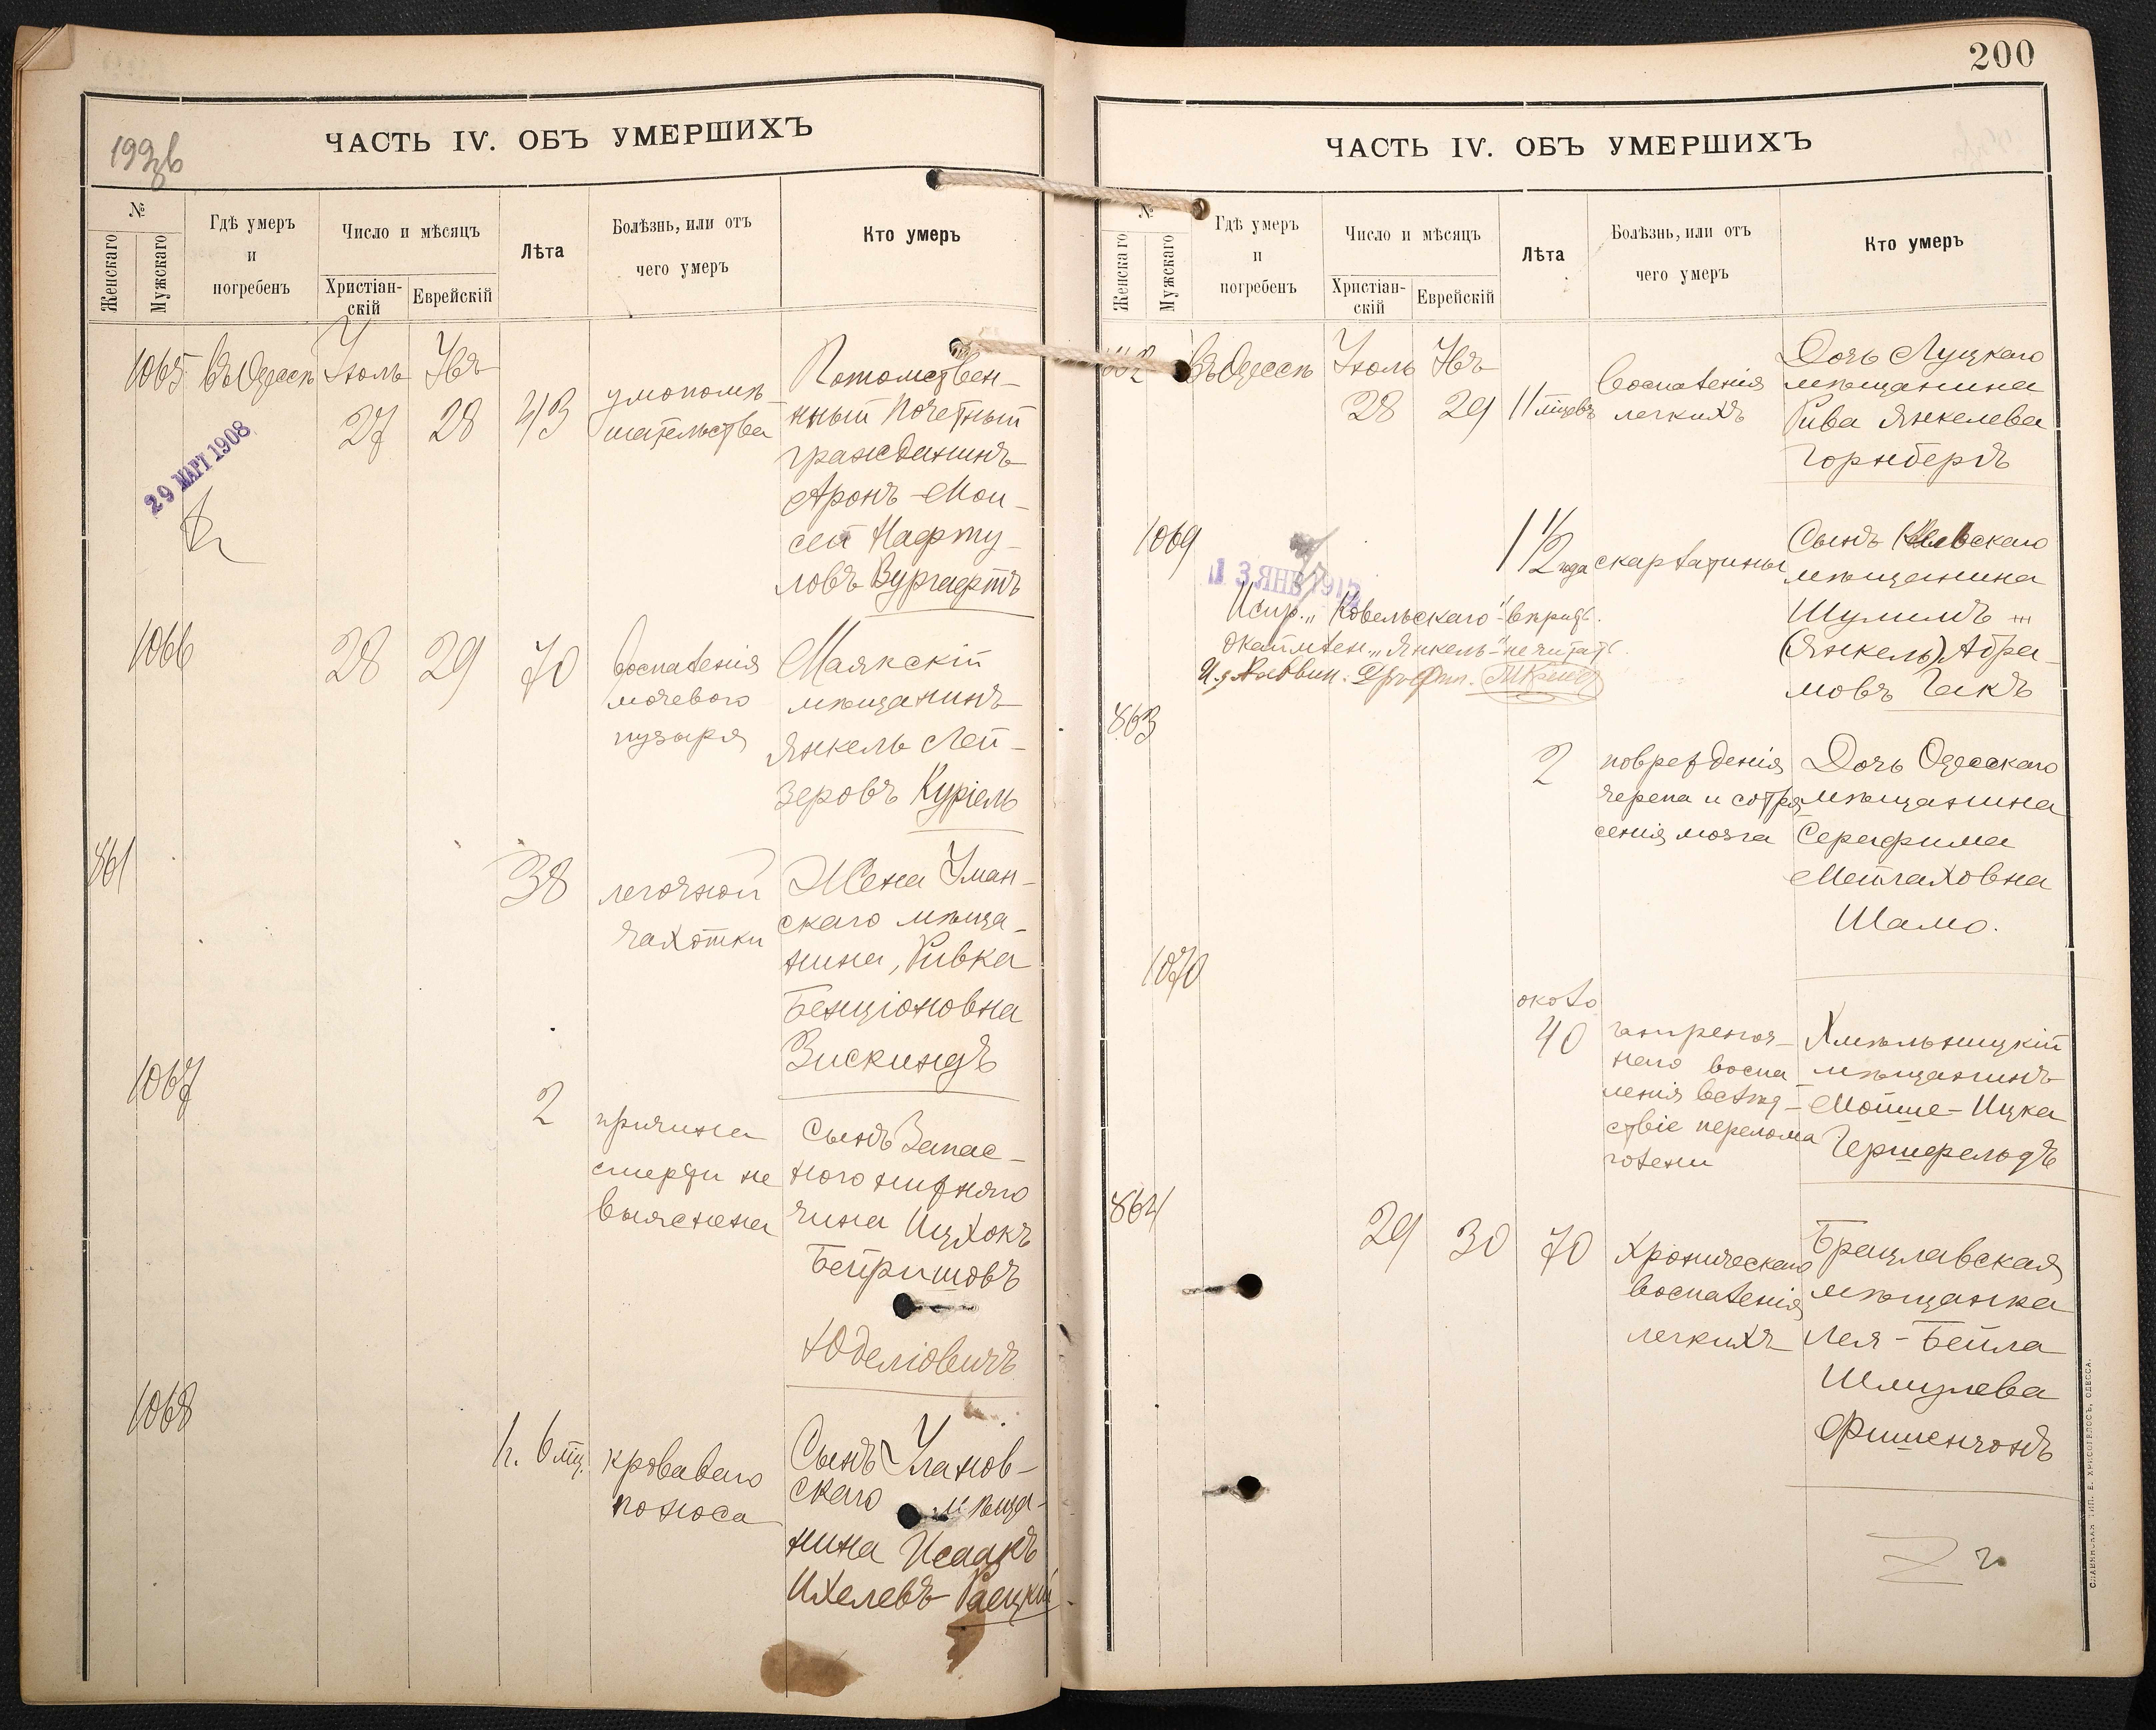 199 об
ЧАСТЬ IV. ОБЪ УМЕРШИХЪ
№
Женскаго
Мужскаго
Гдѣ умеръ
и
погребенъ
Число и мѣсяцъ
Христіан-
скій
Еврейскій
Лѣта
Болѣзнь, или отъ
чего умеръ
Кто умеръ
1065 въ Одессѣ Іюль Авъ
27 28 43
умопомѣ-
шательства
Потомствен-
нный почетный
гражданинъ
Аронъ-Мои-
сей Нафту-
ловъ Вургафтъ
29 МАРТ 1908
1066 28 29 70
воспаленія
мочевого
пузыря
Маякскій
мѣщанинъ
Янкель Лей-
зеровъ Куріель
861 38
легочной
чахотки
Жена Уман-
скаго мѣща-
нина, Ривка
Бенціоновна
Зискиндъ
1067 2
причина
смерти не
выяснена
Сынъ Запас-
ного нижняго
чина Ицхокъ
Бейришовъ
Юделіовичъ
1068 6 мц.
кроваваго
поноса
Сынъ Уланов-
скаго мѣща-
нина Исаакъ
Ихелевъ Раецкій
200
ЧАСТЬ IV. ОБЪ УМЕРШИХЪ
№
Женскаго
Мужскаго
Гдѣ умеръ
и
погребенъ
Число и мѣсяцъ
Христіан-
скій
Еврейскій
Лѣта
Болѣзнь, или отъ
чего умеръ
Кто умеръ
862 въ Одессѣ Іюль Авъ
28 29 11 мѣцевъ
воспаленія
легкихъ
Дочь Луцкаго
мѣщанина
Рива Янкелева
Горнбергъ
1069 1 1/2 года скарлатины
Сынъ Ковельскаго
мѣщанина
Шулимъ
(Янкель) Абра-
мовъ Гакъ
13 ЯНВ 191
Испр. „Ковельскаго"
„Янкель" не читать
863 2
поврежденія
черепа и сотря-
сенія мозга
Дочь Одесскаго
мѣщанина
Серафима
Мейлаховна
Шамо.
1070 около
40
гангреноз-
наго воспа-
ленія вслѣд-
ствіе перелома
голени
Хмѣльницкій
мѣщанинъ
Мойше-Ицка
Гершфельдъ
864 29 30 70
хроническаго
воспаленія
легкихъ
Брацлавская
мѣщанка
Лея-Бейла
Шмулева
Фишензонъ
СЛАВЯНСКАЯ ТИП. Е. ХРИСОГЕЛОСЪ, ОДЕССА.